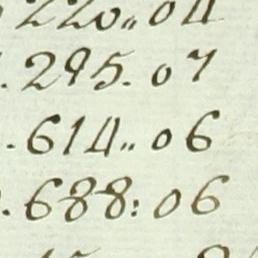 220,, 04
. 295. 07
. 614,, 06
. 688: 06